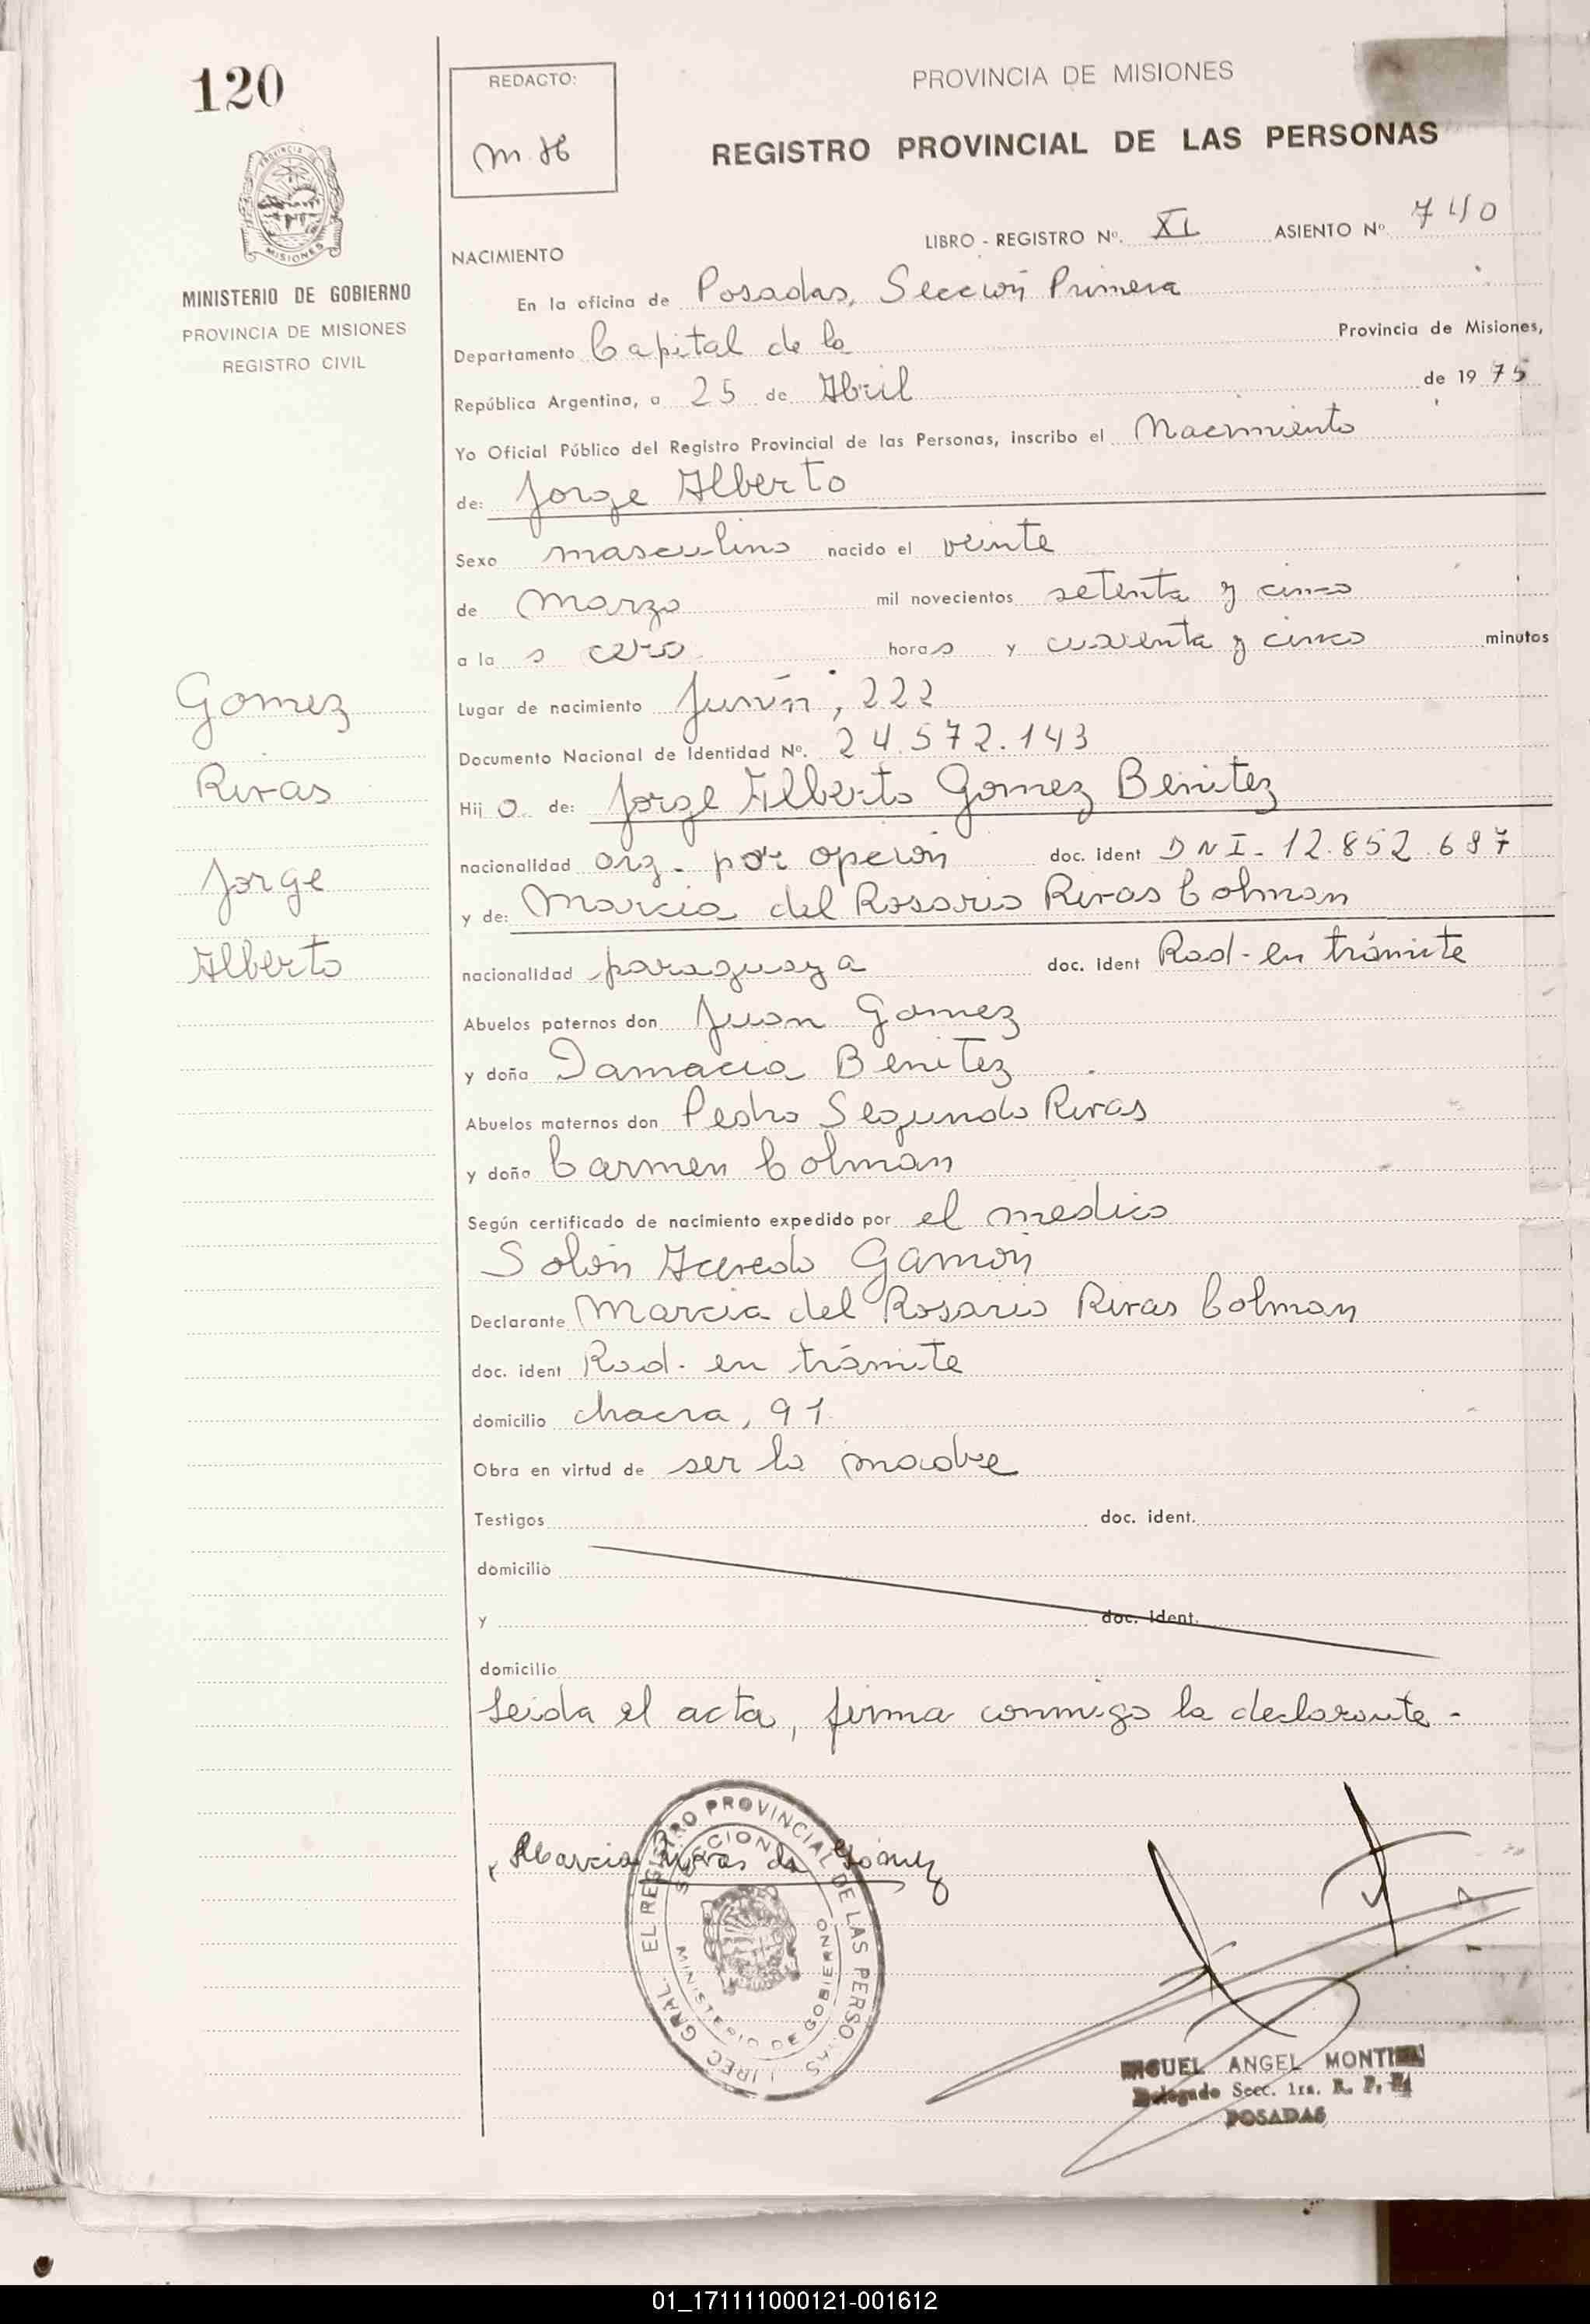 120
REDACTO:
M.H
PROVINCIA DE MISIONES
REGISTRO PROVINCIAL DE LAS PERSONAS
PROVINCIA DE MISIONES
MINISTERIO DE GOBIERNO
PROVINCIA DE MISIONES
REGISTRO CIVIL
LIBRO - REGISTRO Nº. XI ASIENTO Nº. 740
NACIMIENTO
En la oficina de Posadas, Sección Primera
Departamento Capital de la Provincia de Misiones,
República Argentina, a 25 de Abril de 1975
Yo Oficial Público del Registro Provincial de las Personas, inscribo el Nacimiento
de: Jorge Alberto
Sexo masculino nacido el veinte
de Marzo mil novecientos setenta y cinco
a la s cero horas y cuarenta y cinco minutos
Gomez
Rivas
Jorge
Alberto
Lugar de nacimiento Junín, 222
Documento Nacional de Identidad Nº. 24.572.143
Hij o de: Jorge Alberto Gomez Benitez
nacionalidad arg. por opción doc. ident DNI- 12.852.687
y de: Marcia del Rosario Rivas Colman
nacionalidad paraguaya doc. ident Rad- en trámite
Abuelos paternos don Juan Gomez
y doña Damacia Benitez
Abuelos maternos don Pedro Segundo Rivas
y doña Carmen Colman
Según certificado de nacimiento expedido por el medico
Solón Acevedo Gamón
Declarante Marcia del Rosario Rivas Colman
doc. ident Rad- en trámite
domicilio chacra, 91
Obra en virtud de ser la madre
Testigos doc. ident.
domicilio
y doc. ident.
domicilio
Leida el acta, firma conmigo la declarante -
Marcia Rivas de Gómez
DIREC. GRAL. EL REGISTRO PROVINCIAL DE LAS PERSONAS
SECCION
MINISTERIO DE GOBIERNO
MIGUEL ANGEL MONTIEL
Delegado Secc. 1ra. R. P. P.
POSADAS
01_171111000121-001612